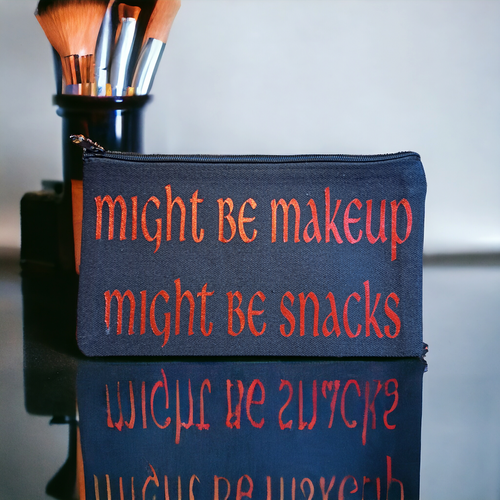 might be makeup
might be snacks